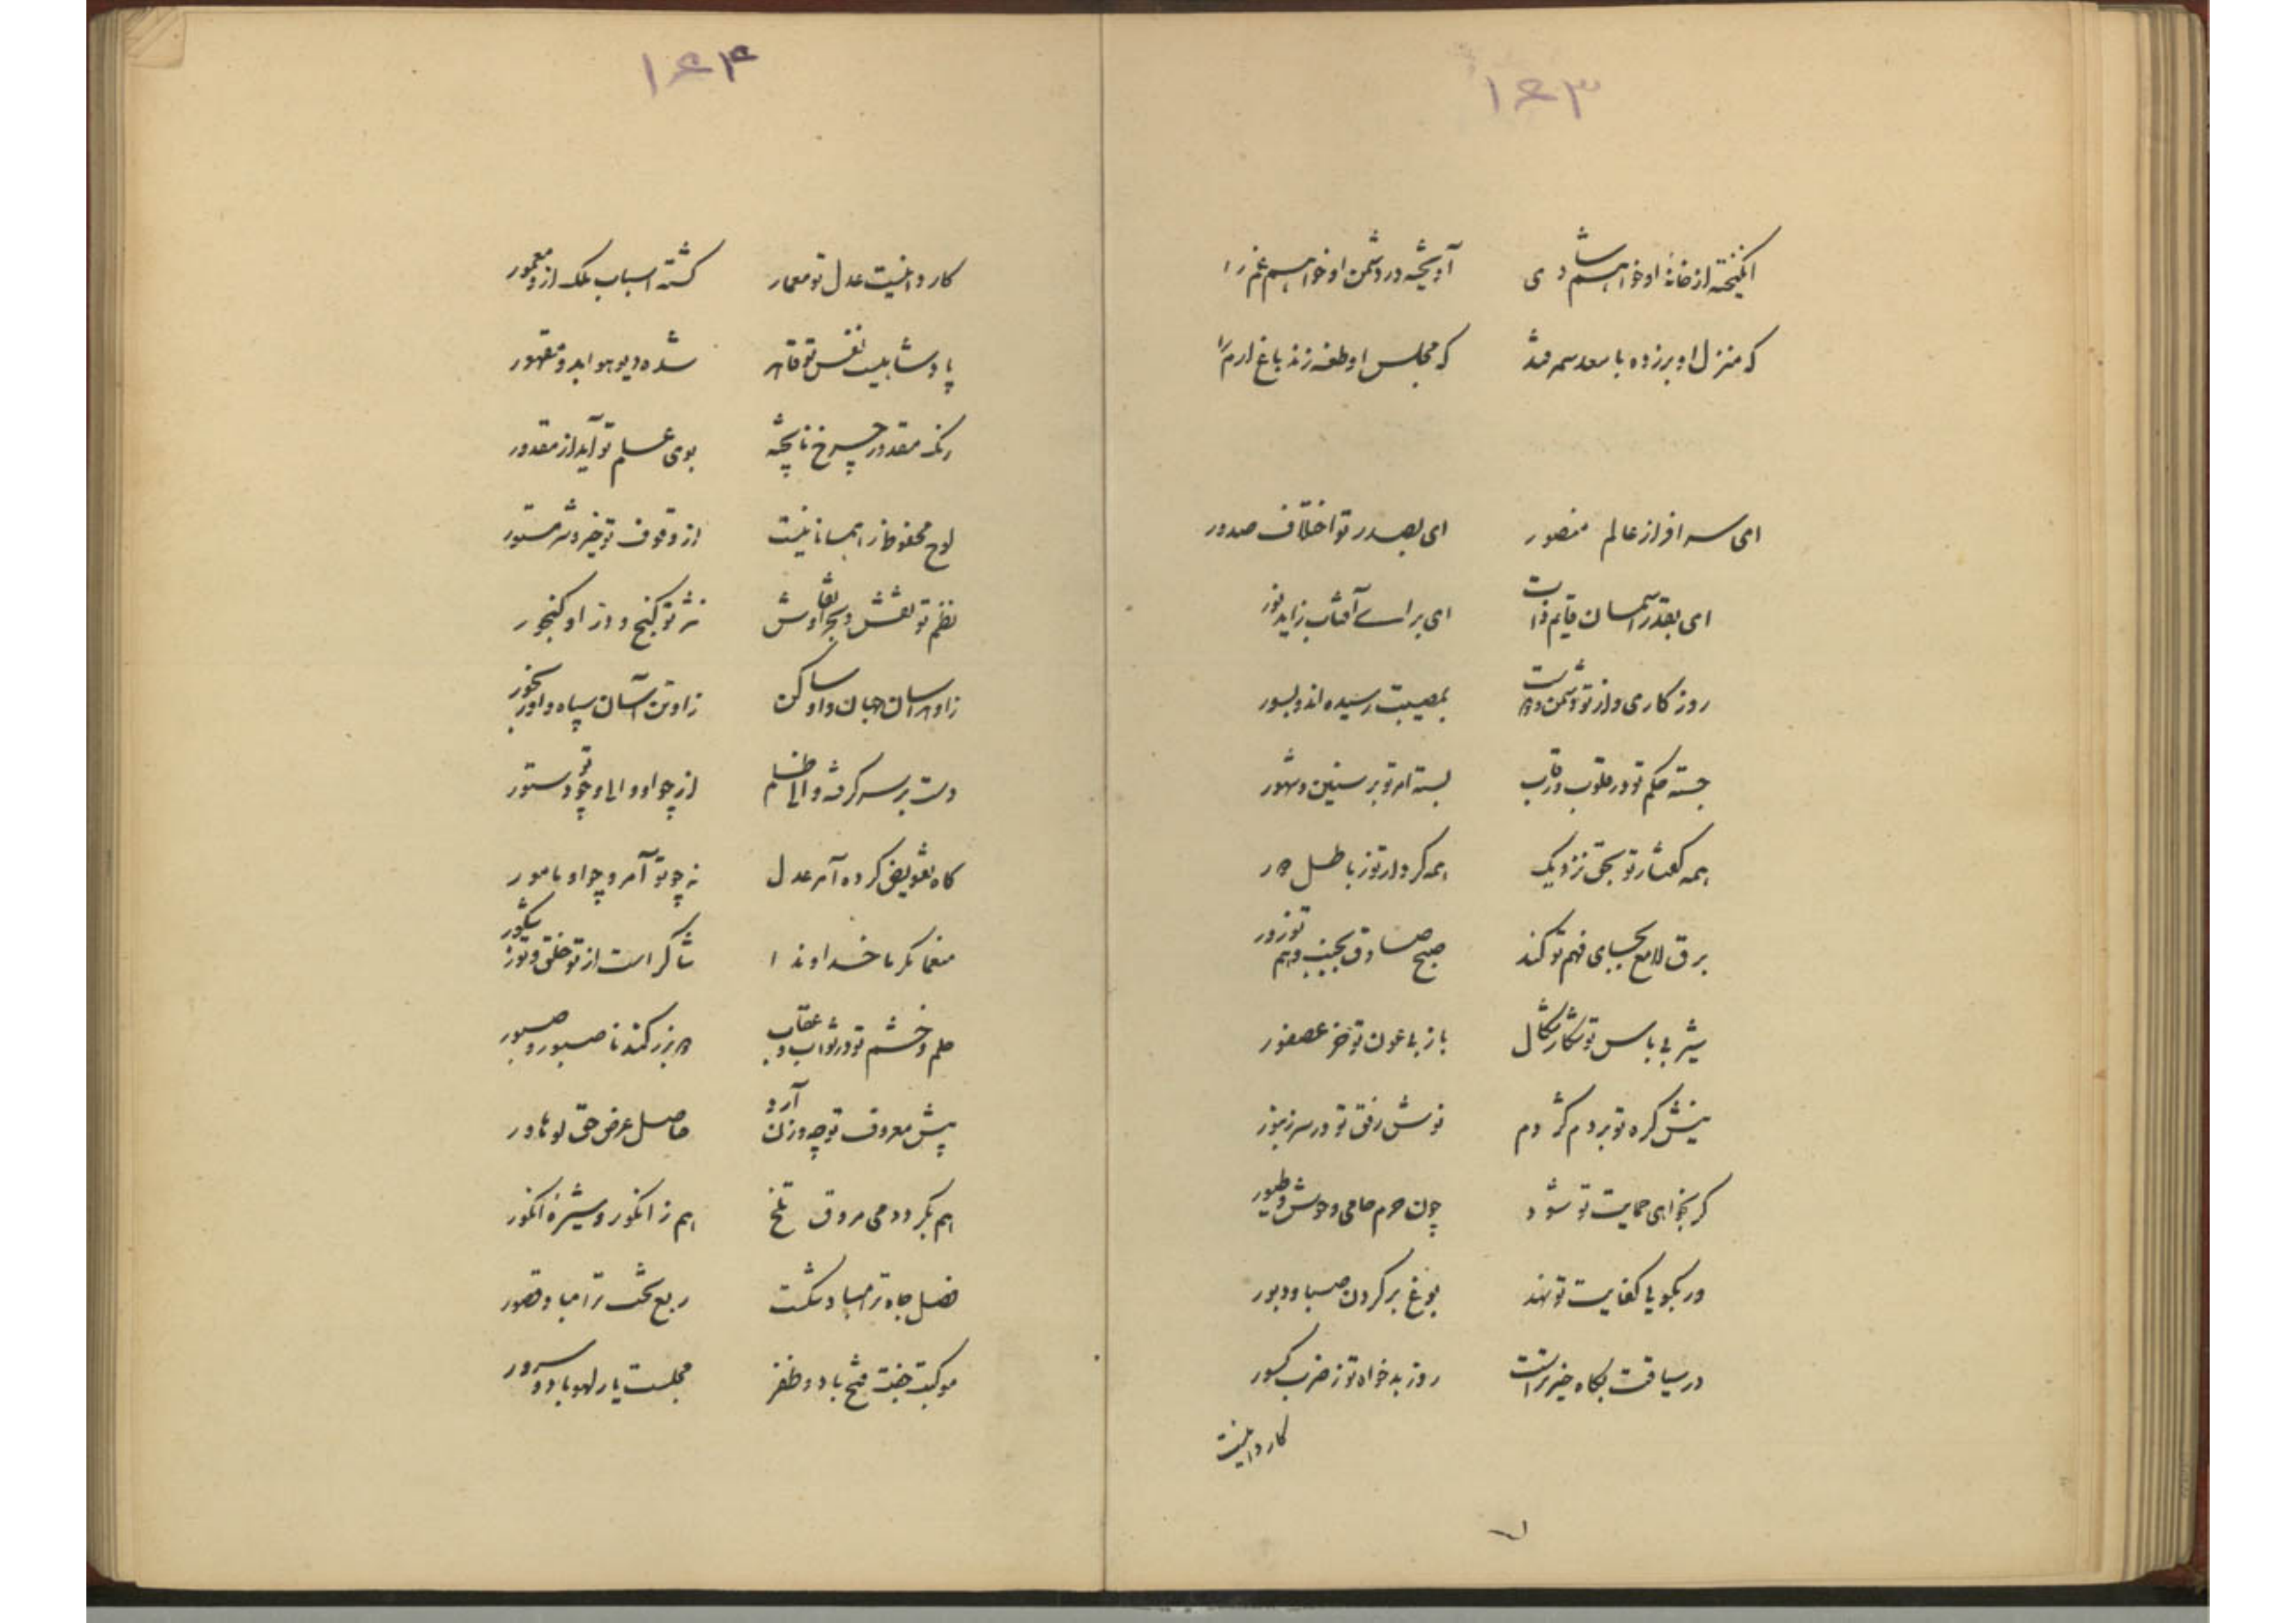 ۱۶۳
انگیخته از خانهٔ او خواهم شادی آویخته در دشمن او خواهم غم را
که منزل او برزده با سعد سمرقند که مجلس او طعنه زند باغ ارم را
ای سرافراز عالم منصور ای بصدر تو اختلاف صدور
ای بقدر آسمان قایم ذات ای برای آفتاب زاید نور
روزگاری و از تو دشمن و دوست بمصیبت رسیده اند و بسور
جسته حکم تو در قلوب و رقاب بسته امر تو بر سنین و شهور
همه گفتار تو بحق نزدیک همه کردار تو ز باطل دور
برق لامع بجای فهم تو کند صبح صادق بجنب وهم تو زور
شیر بی باس تو شکار شکال باز با عون تو خر عصفور
نیش کره تو بر دم کژدم نوش رفق تو در سر زنبور
گر بخواهی حمایت تو شود چون حرم حامی وحوش و طیور
ور بگویی کفایت تو نهد یوغ بر گردن صبا و دبور
در سیاقت بگاه خیر تراست روز بدخواه تو ز ضرب کسور
کاردانیت
۱۶۴
کاردانیت عدل تو معمار گشته اسباب ملک ازو معمور
پادشاهیت نفس تو قاهر شده دیو هوا بدو مقهور
رنگ مقدور چرخ ناپخته بوی علم تو آید از مقدور
لوح محفوظ را همانا نیست از وقوف تو خیر و شر مستور
نظم تو نقش و بحر نقاش نثر تو گنج و در او گنجور
زاد هراسان جهان و او ساکن زاو تن آسان سپاه و او رنجور
دست بر سر گرفته والی ظلم از چو او والی و چو تو دستور
گاه تفویض کرده آمر عدل نه چو تو آمر و چو او مامور
منعما مکرما خداوندا شاکر است از تو خلق و تو ز شکور
حلم و خشم تو در ثواب و عقاب در گذر کند نا صبور و صبور
پیش معروف تو چه وزن آرد حاصل عرض حق لوهاور
هم بگردد می مروق تلخ هم ز انگور و شیرهٔ انگور
فصل جاه ترا مباد شکست ربع بخت ترا مباد قصور
موکبت جفت فتح باد و ظفر مجلست یار لهو باد و سرور